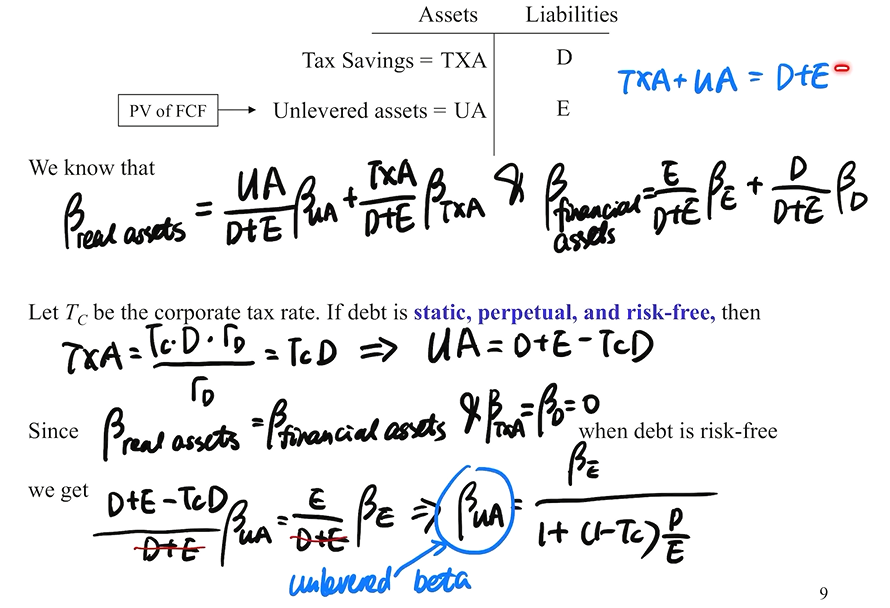 Assets Liabilities
Tax Savings = TXA D
TXA + UA = D+E
PV of FCF Unlevered assets = UA E
We know that
β real assets = UA/(D+E) β_UA + TXA/(D+E) β_TXA & β financial assets = E/(D+E) β_E + D/(D+E) β_D
Let T_C be the corporate tax rate. If debt is static, perpetual, and risk-free, then
TXA = (Tc·D·r_D)/r_D = TcD ⇒ UA = D+E-TcD
Since β real assets = β financial assets & β_TXA = β_D = 0 when debt is risk-free
we get (D+E-TcD)/(D+E) β_UA = E/(D+E) β_E ⇒ β_UA = β_E/(1+(1-Tc) D/E)
unlevered beta
9